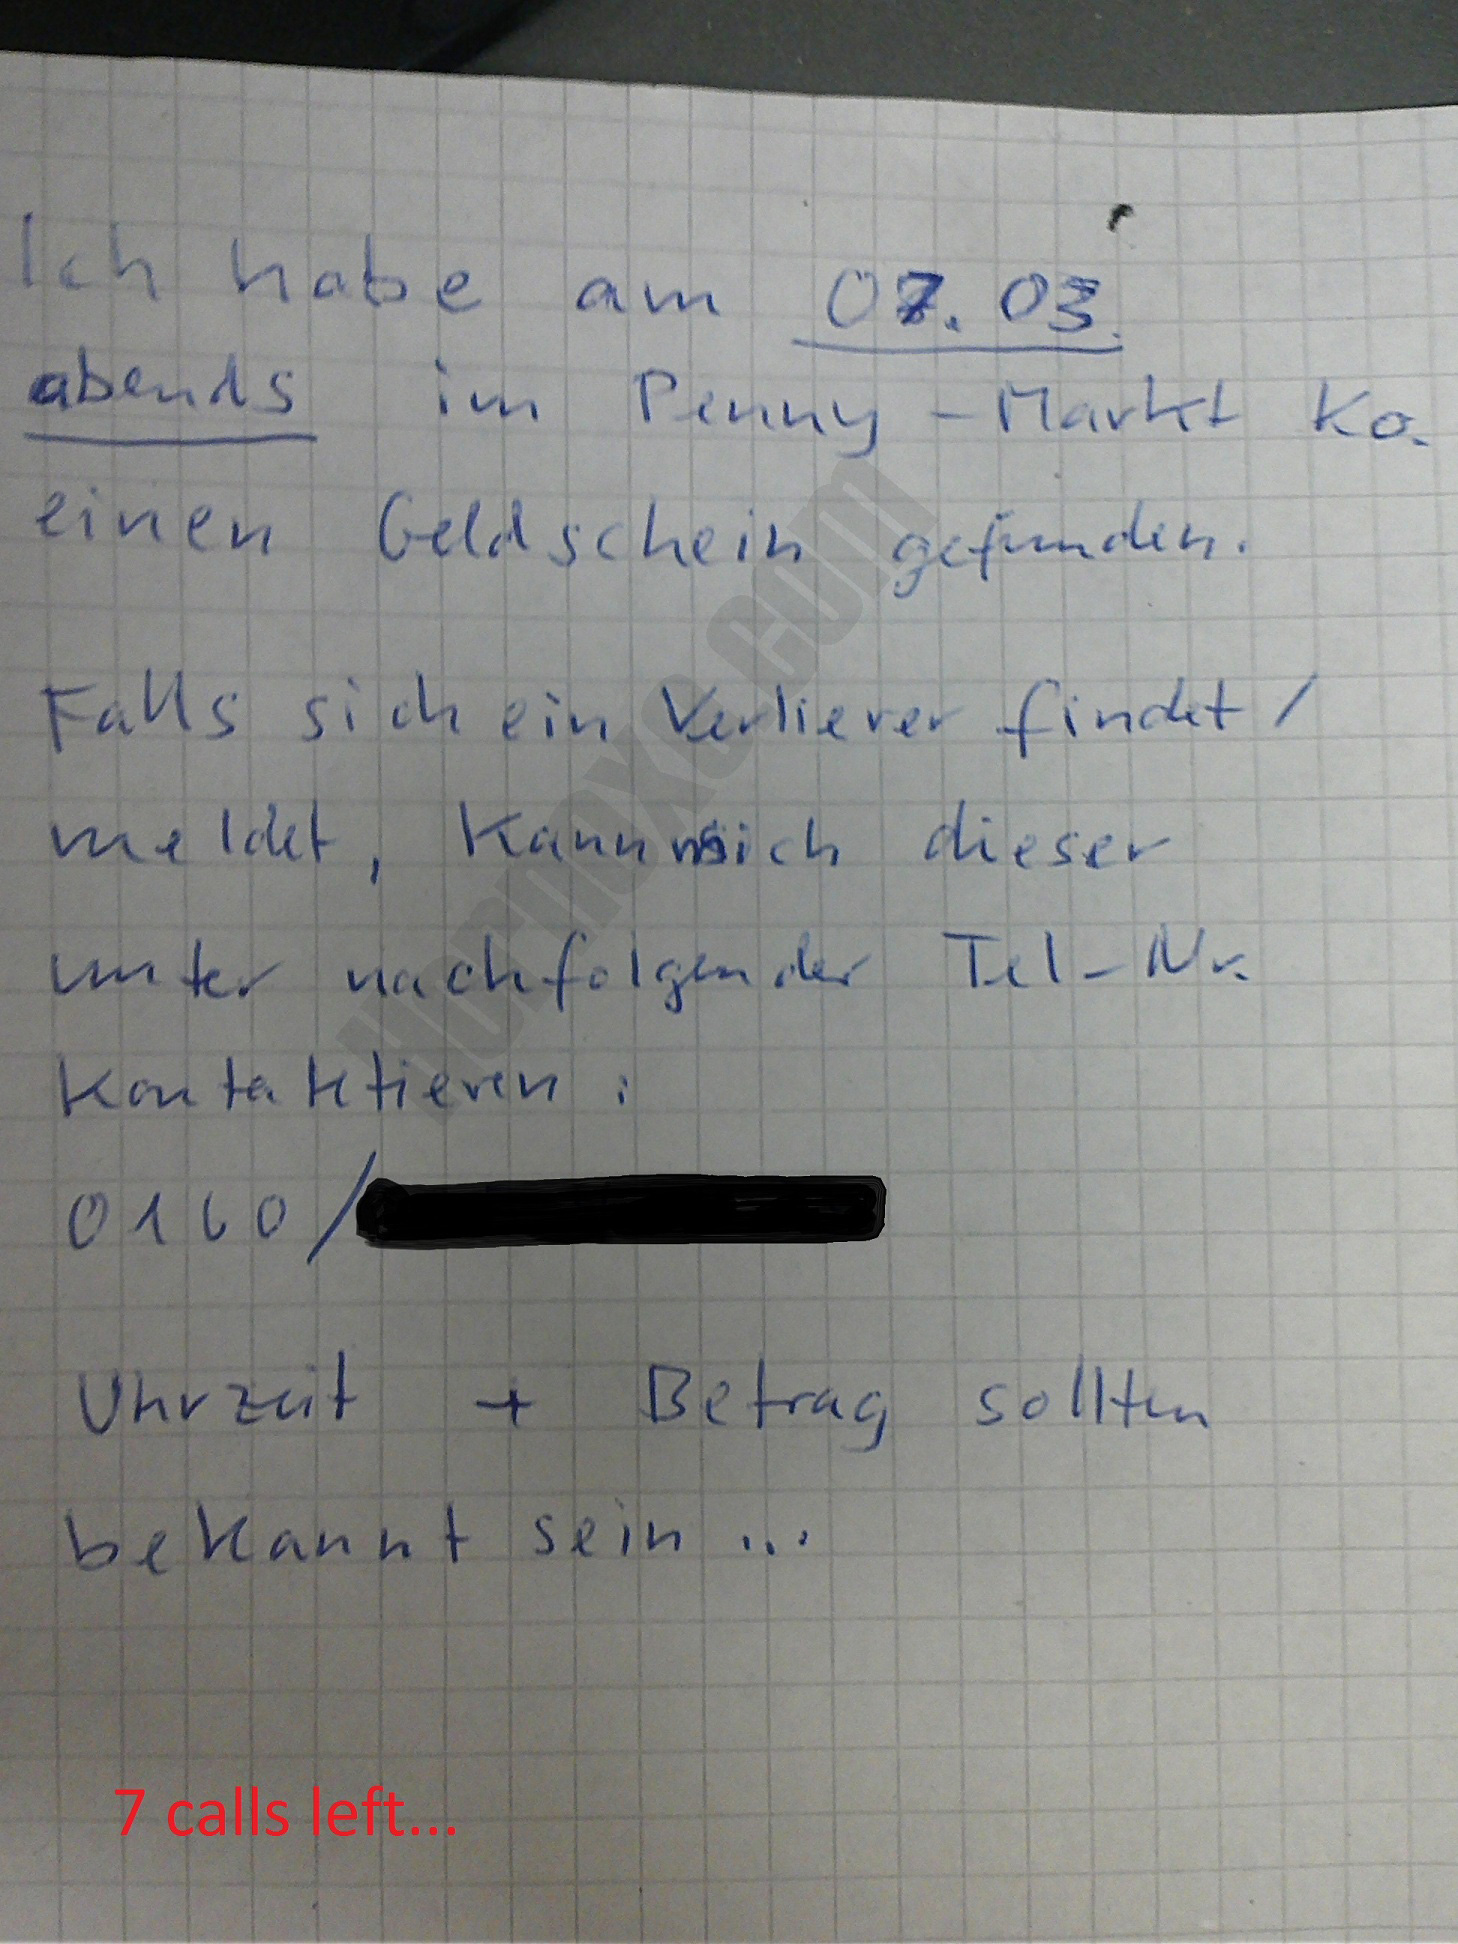 Ich habe am 07.03.
abends im Penny-Markt Ko.
einen Geldschein gefunden.
Falls sich ein Verlierer findet/
meldet, kann sich dieser
unter nachfolgender Tel-Nr.
kontaktieren:
0160/
Uhrzeit + Betrag sollten
bekannt sein...
Hornoxe.com
7 calls left...